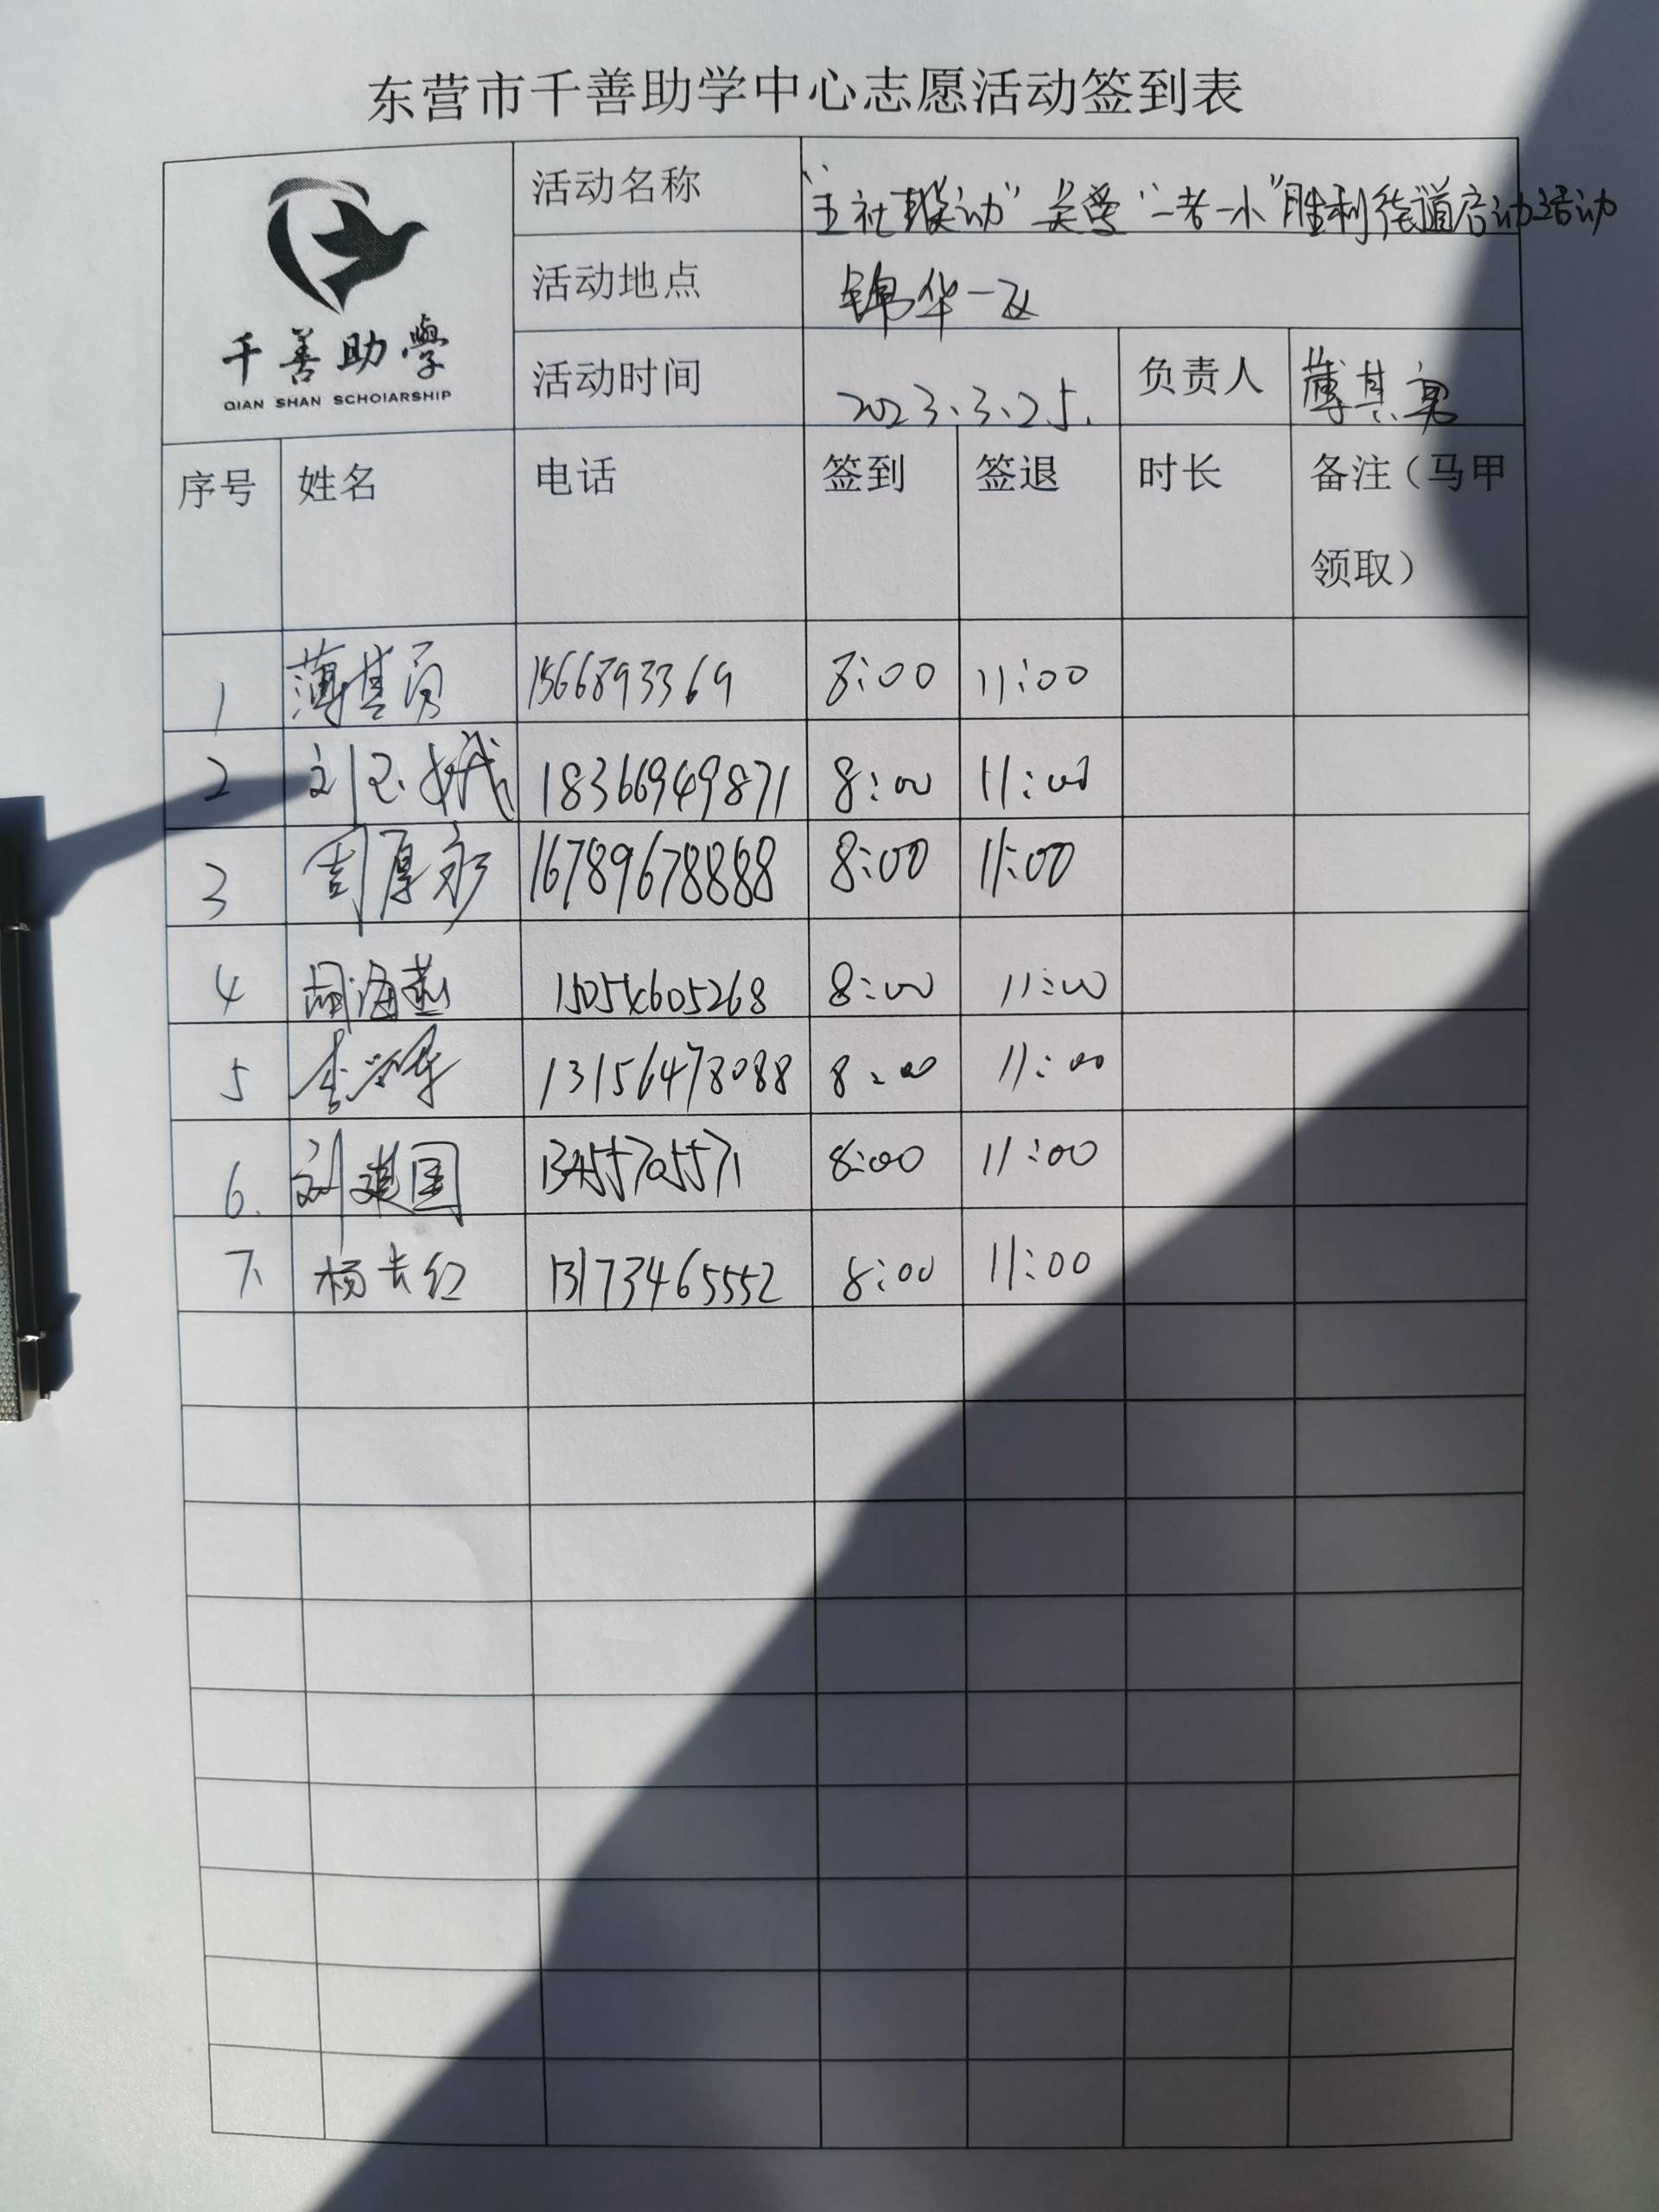 东营市千善助学中心志愿活动签到表
千善助學
QIAN SHAN SCHOIARSHIP
活动名称 "五社联动"关爱"一老一小"胜利街道启动活动
活动地点 锦华一区
活动时间 2023.3.25. 负责人 薄其亮
序号 姓名 电话 签到 签退 时长 备注（马甲
领取）
1 薄其亮 8:00 11:00
2 刘玉娥 18366949871 8:00 11:00
3 厚永 16789678888 8:00 11:00
4 胡海燕 15054605268 8:00 11:00
5 李 13156478088 8:00 11:00
6. 刘建国 8:00 11:00
7. 杨长红 13173465552 8:00 11:00